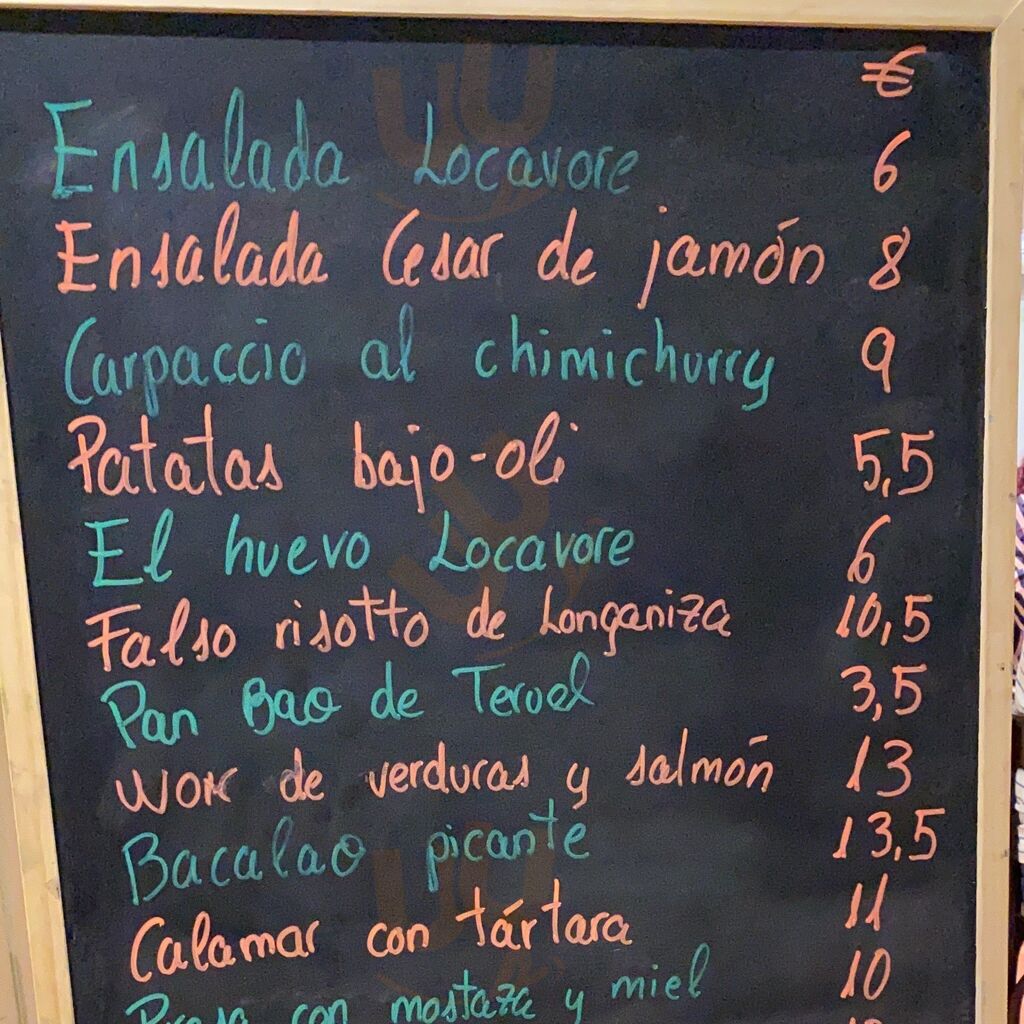 €
Ensalada Locavore 6
Ensalada Cesar de jamón 8
Carpaccio al chimichurry 9
Patatas bajo-oli 5,5
El huevo Locavore 6
Falso risotto de Longaniza 10,5
Pan Bao de Teruel 3,5
WOK de verduras y salmón 13
Bacalao picante 13,5
Calamar con tártara 11
con mostaza y miel 10